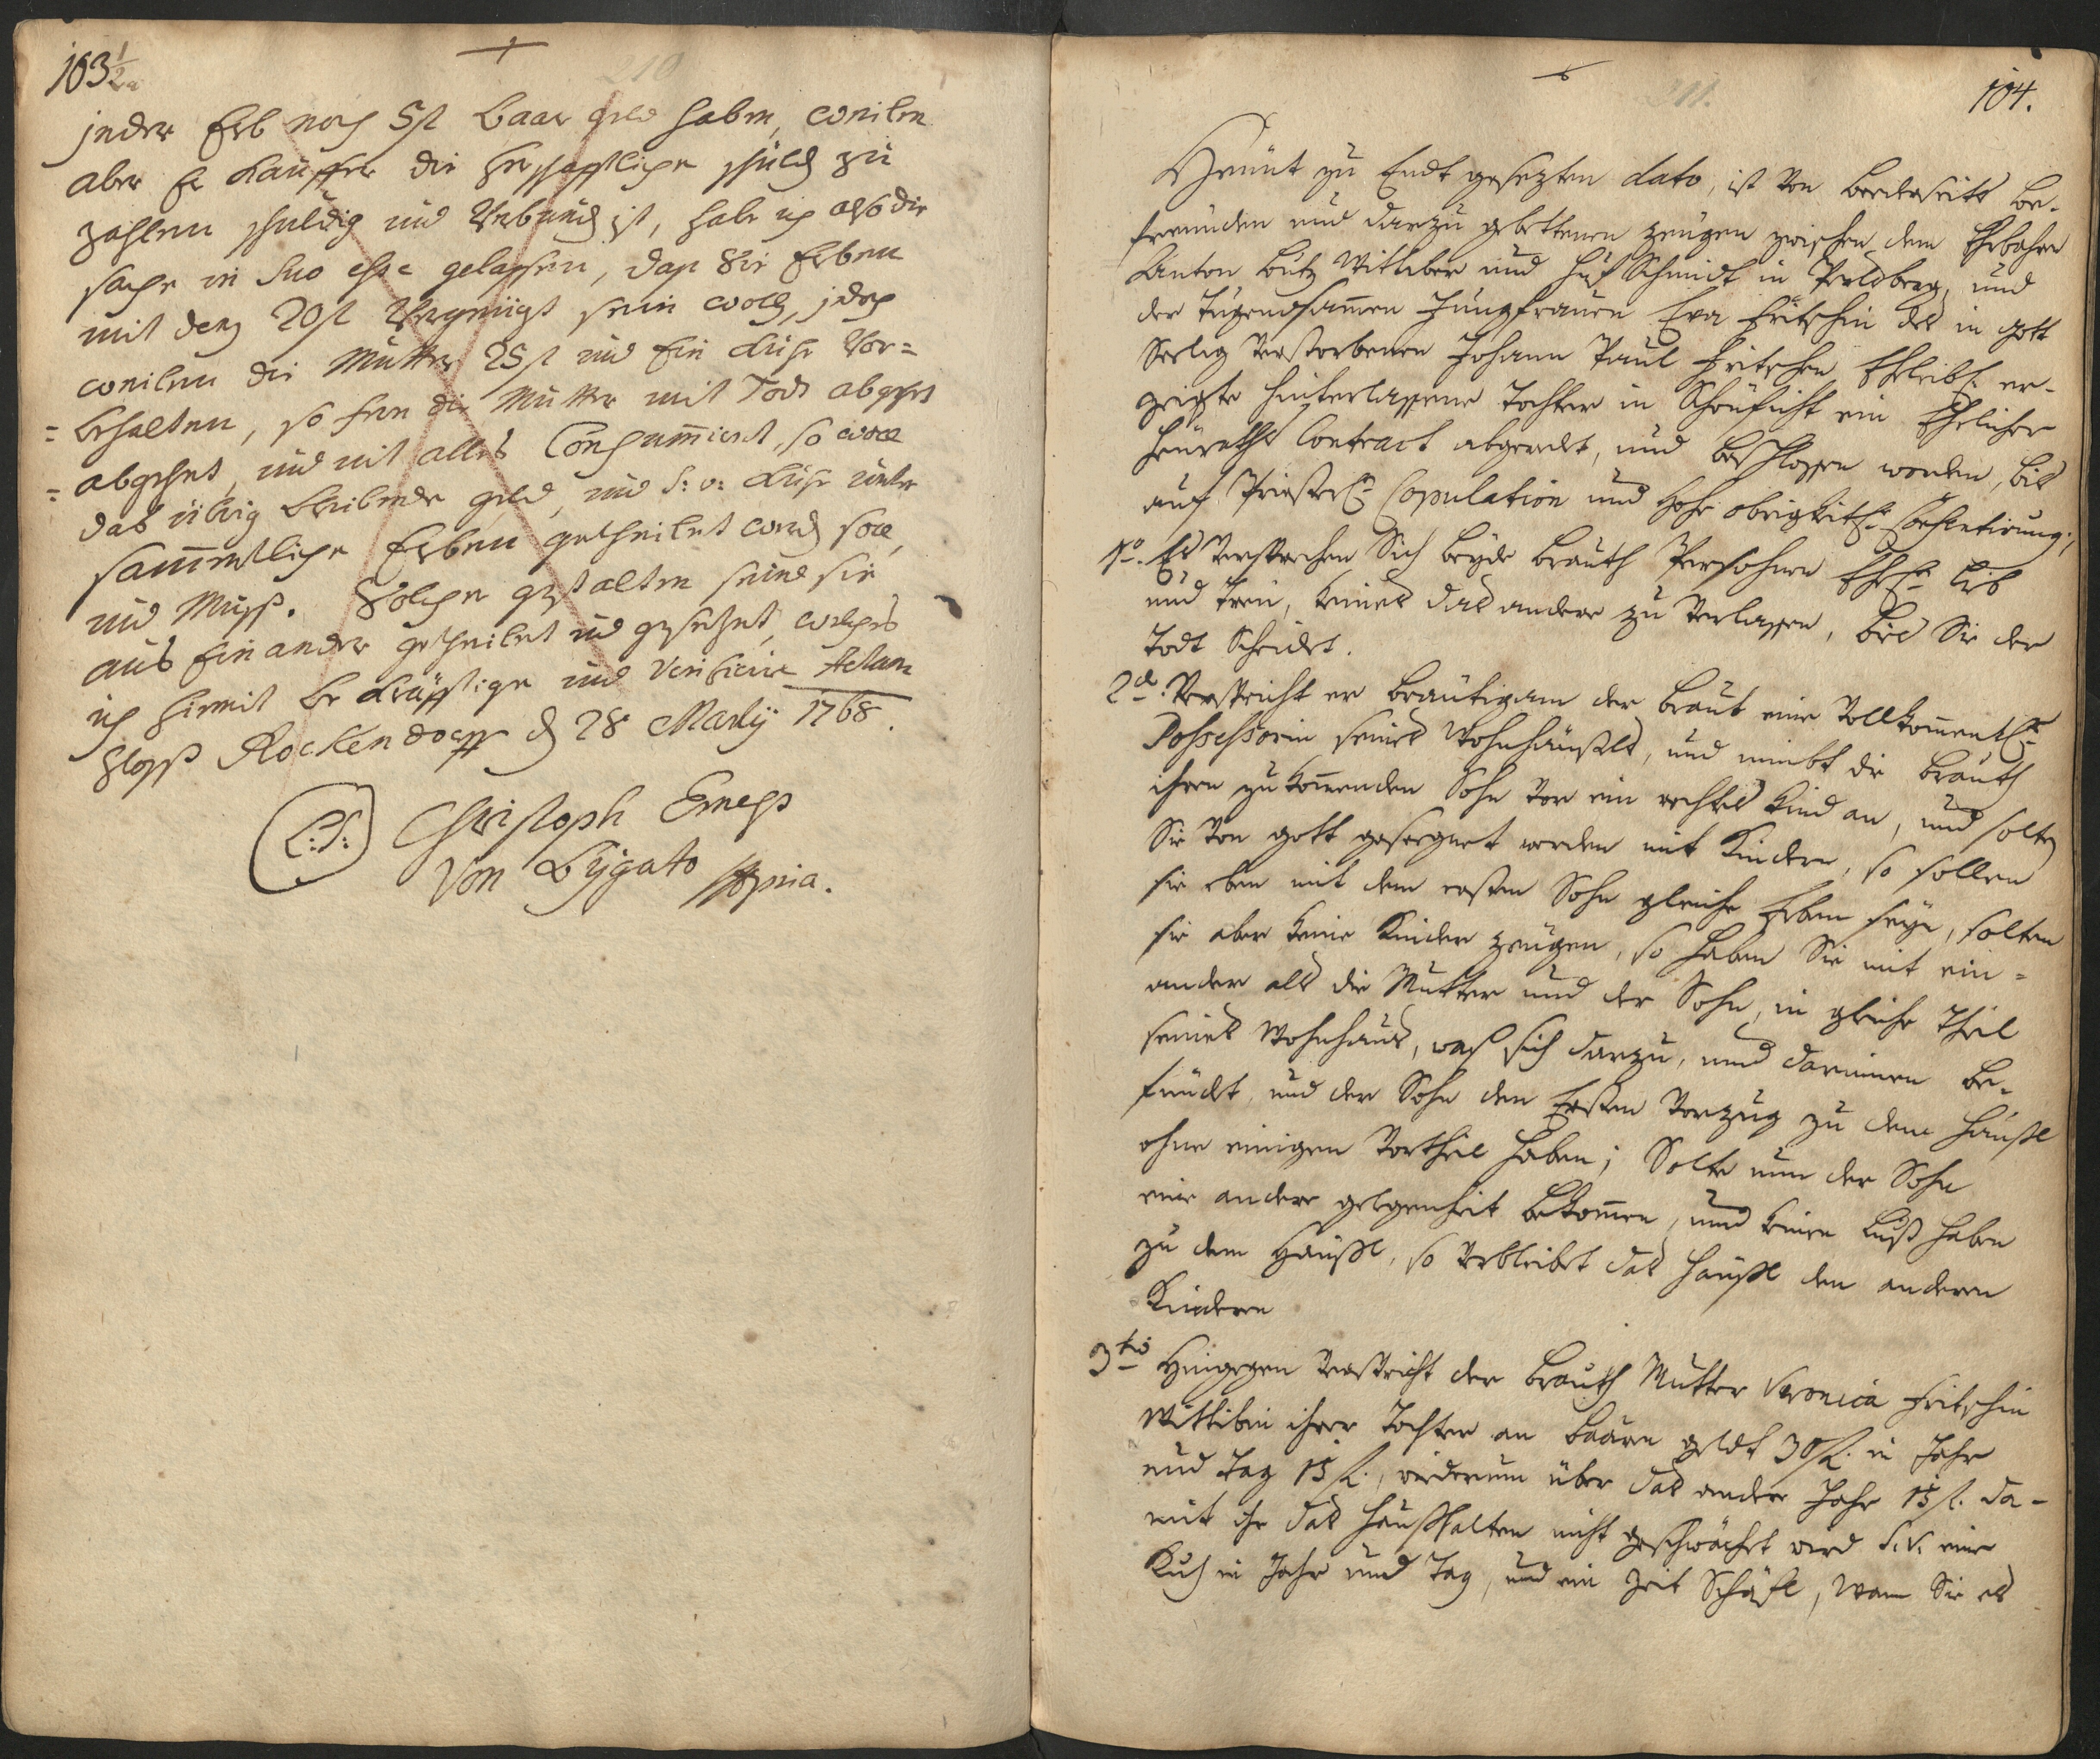 103 1/2
210
jeder Erb noch 5 fl Baar geld haben, weilen
aber Er Kauffer die herschafftliche schuld zu
zahlen schuldig und Verbund ist, habe ich also die
sache in suo esse gelassen, daß die Erben
mit denen 20 fl Vergnügt sein woll, jdoch
weilen die Mutter 25 fl und Ein Kuhe Vor=
=behalten, so fern die Mutter mit Todt abgehet
=abgehet, und nit alles Consummiert, so woll
das übrig bleibende geld, und S: v: Kuhe unter
sammentliche Erben getheilet werd soll
und Muß. Solcher gestalten seind sie
aus Einander getheilet und gesezet, welches
ich hiermit bekräfftige und Verificire Actum
Schloß Rockendorff d 28 Martij 1768.
L: S: Christoph Ernest
Von Bijgato mpria.
211.
104.
Heunt zu Endt gesezten dato, ist von beederseits be-
freunden und darzu gebettenen zeugen zwischen dem Ehrbahren
Anton Lutz Wittiber und Huf Schmidt in Perlsberg, und
der Tugendsamen Jungfrauen Eva Fritschin des in gott
Seelig verstorbenen Johann Paul Fritschen Ehleibl. er-
zeigte hinterlassene Tochter in Schönficht ein Ehelicher
Heuraths Contract abgeredt, und beschlossen worden, bis
auf Priesterl. Copulation und Hohe obrigkeitl.
1o. Es versprechen Sich beyde brauth Persohnen Ehel. lieb
und treu, keines das andere zu verlassen, bis Sie der
Todt Scheidet.
2do. Verspricht er Bräutigam der braut eine Vollkommentl.
Possessorin seines Wohnhäußls, und nimbt die brauth
ihren zukommenden Sohn vor ein rechtes Kind an, und solten
Sie von gott geseegnet werden mit Kindern, so sollen
sie eben mit dem ersten Sohn gleiche Erben seyn, solten
sie aber keine Kinder zeugen, so haben Sie mit ein=
ander als die Mutter und der Sohn, in gleiche Theil
seines Wohnhaus, waß sich darzu, und darinnen be-
findet, und der Sohn den Ersten Vorzug zu dem Häußl
ohne einigen Vortheil haben; Solte nun der Sohn
eine andere gelegenheit bekommen, und keinen Lust haben
zu dem Häußl, so verbleibet das Häußl den anderen
Kindern
3tio Hingegen verspricht der brauth Mutter Veronica Fritschin
Wittibin ihrer Tochter an Baaren geldt 30 fl. in Jahr
und Tag 15 fl., wiederum über das andere Jahr 15 fl. da-
mit ihr das Haußhalten nicht geschwächt wird S.V. eine
Kuh in Jahr und Tag, und ein Zeit Schäfl, wann Sie es